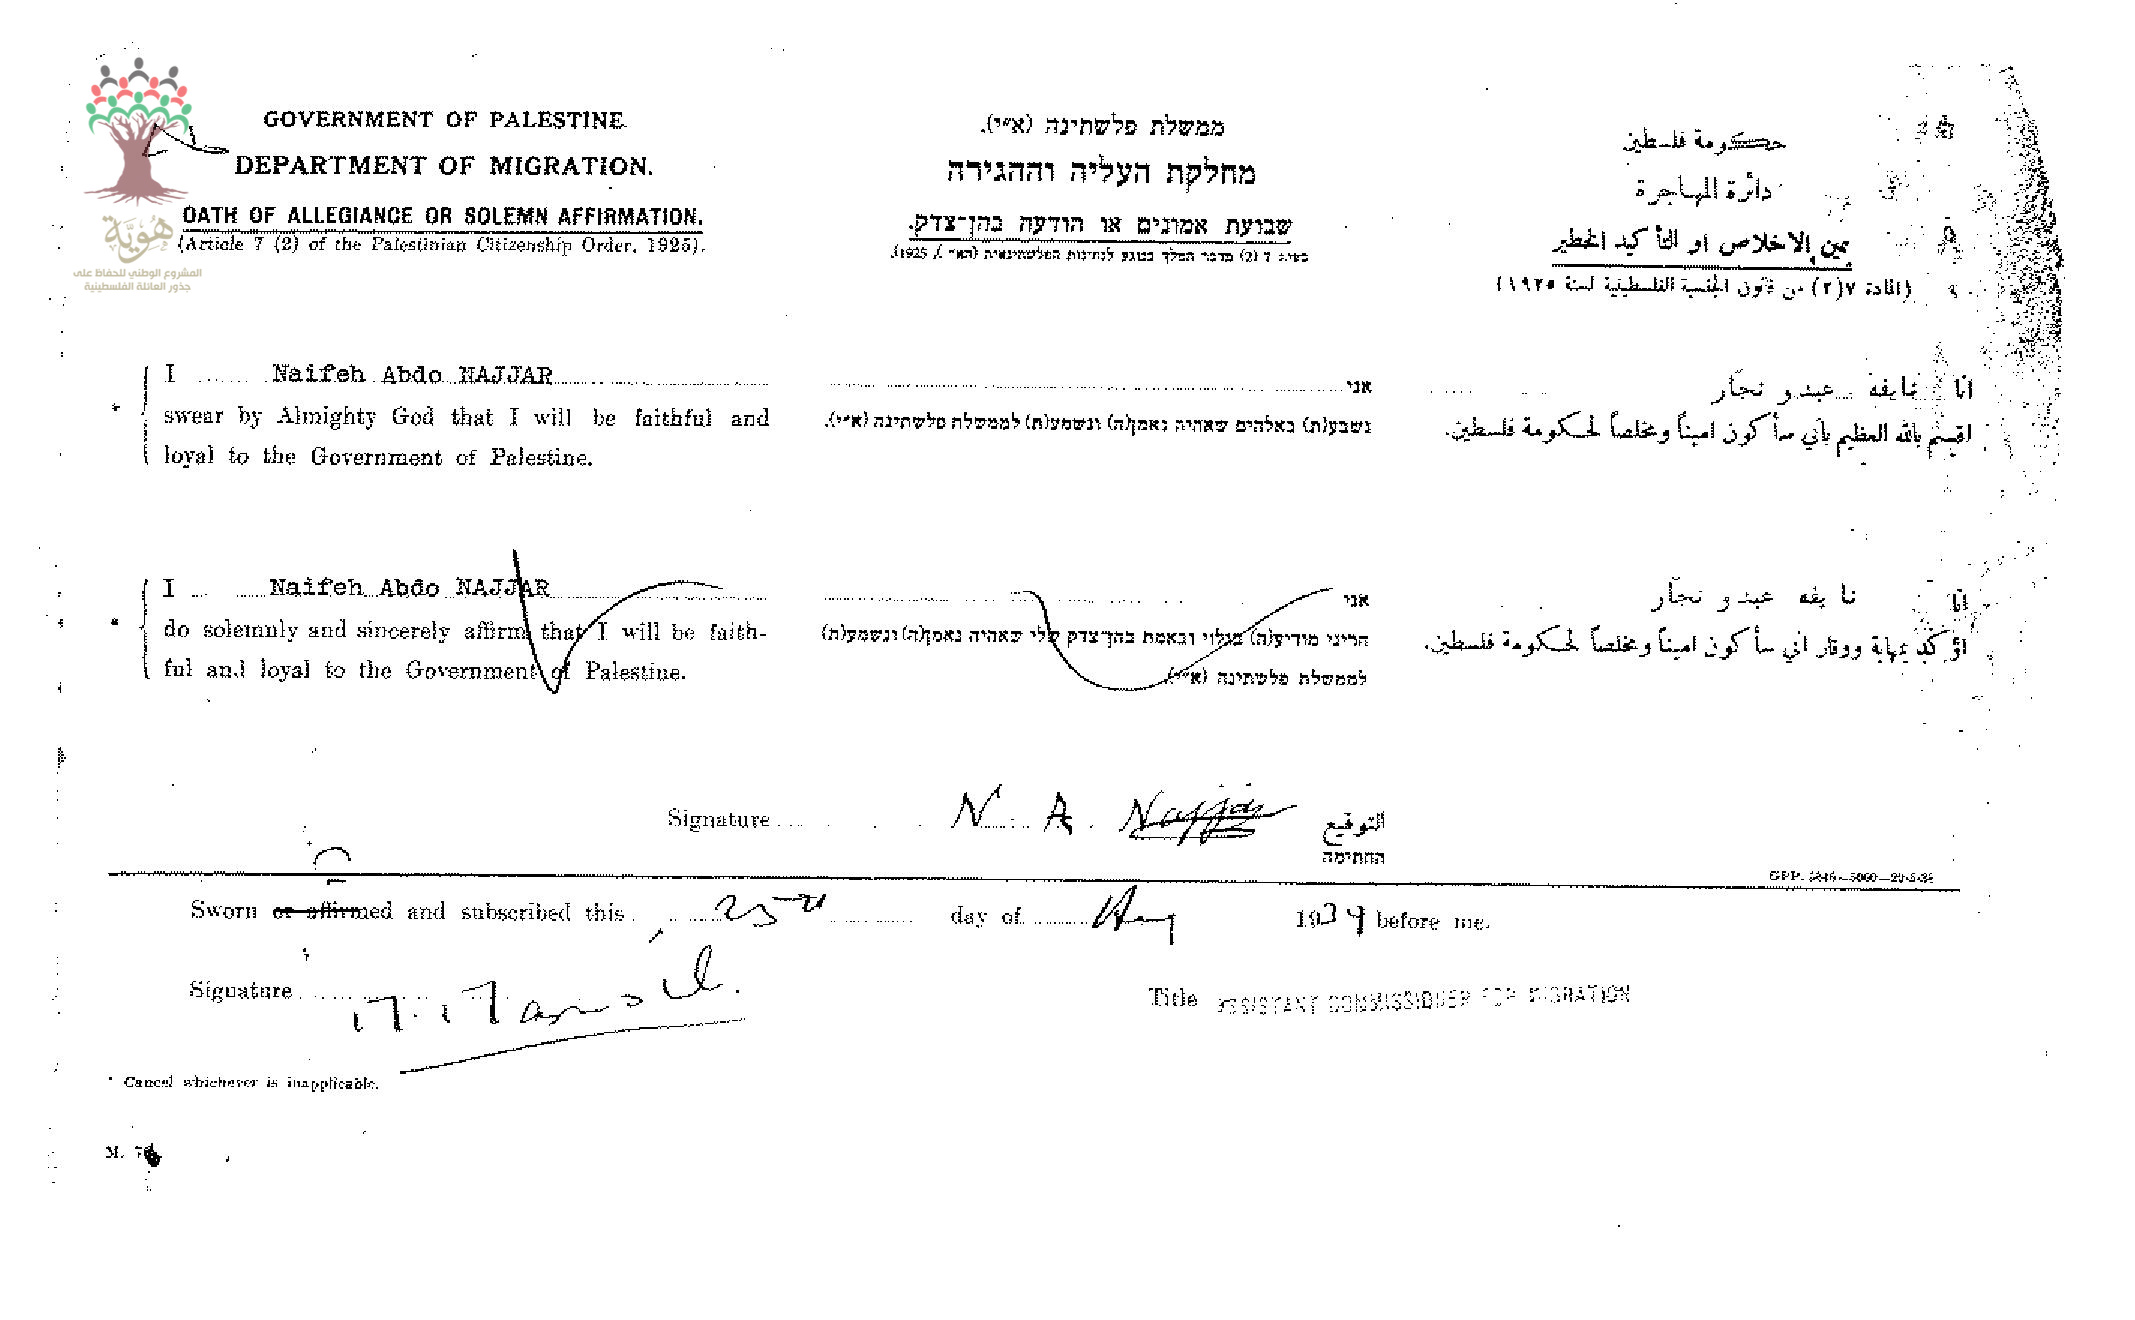 GOVERNMENT OF PALESTINE.
DEPARTMENT OF MIGRATION.
OATH OF ALLEGIANCE OR SOLEMN AFFIRMATION.
(Article 7 (2) of the Palestinian Citizenship Order, 1925).
هُوِيَّة
المشروع الوطني للحفاظ على
جذور العائلة الفلسطينية
ממשלת פלשתינה (א״י).
מחלקת העליה וההגירה
שבועת אמונים או הודעה בהן־צדק.
(2) מדבר המלך בנוגע לנתינות הפלשתינאית (הא״י), 1925.
حكومة فلسطين
دائرة المهاجرة
يمين الاخلاص او التأكيد الخطير
(المادة ٧(٢) من قانون الجنسية الفلسطينية لسنة ١٩٢٥)
* I Naifeh Abdo NAJJAR
swear by Almighty God that I will be faithful and
loyal to the Government of Palestine.
אני
נשבע(ת) באלהים שאהיה נאמן(ה) ונשמע(ת) לממשלת פלשתינה (א״י).
انا نايفه عبدو نجّار
اقسم بالله العظيم بأني سأكون اميناً ومخلصاً لحكومة فلسطين.
* I Naifeh Abdo NAJJAR
do solemnly and sincerely affirm that I will be faith-
ful and loyal to the Government of Palestine.
אני
הריני מודיע(ה) בגלוי ובאמת בהן־צדק שלי שאהיה נאמן(ה) ונשמע(ת)
לממשלת פלשתינה (א״י).
انا نايفه عبدو نجّار
اؤكد بمهابة ووقار اني سأكون اميناً ومخلصاً لحكومة فلسطين.
Signature N. A. Najjar التوقيع
החתימה
Sworn or affirmed and subscribed this 25th day of 1939 before me.
Signature
Title ASSISTANT COMMISSIONER FOR MIGRATION
* Cancel whichever is inapplicable.
M.